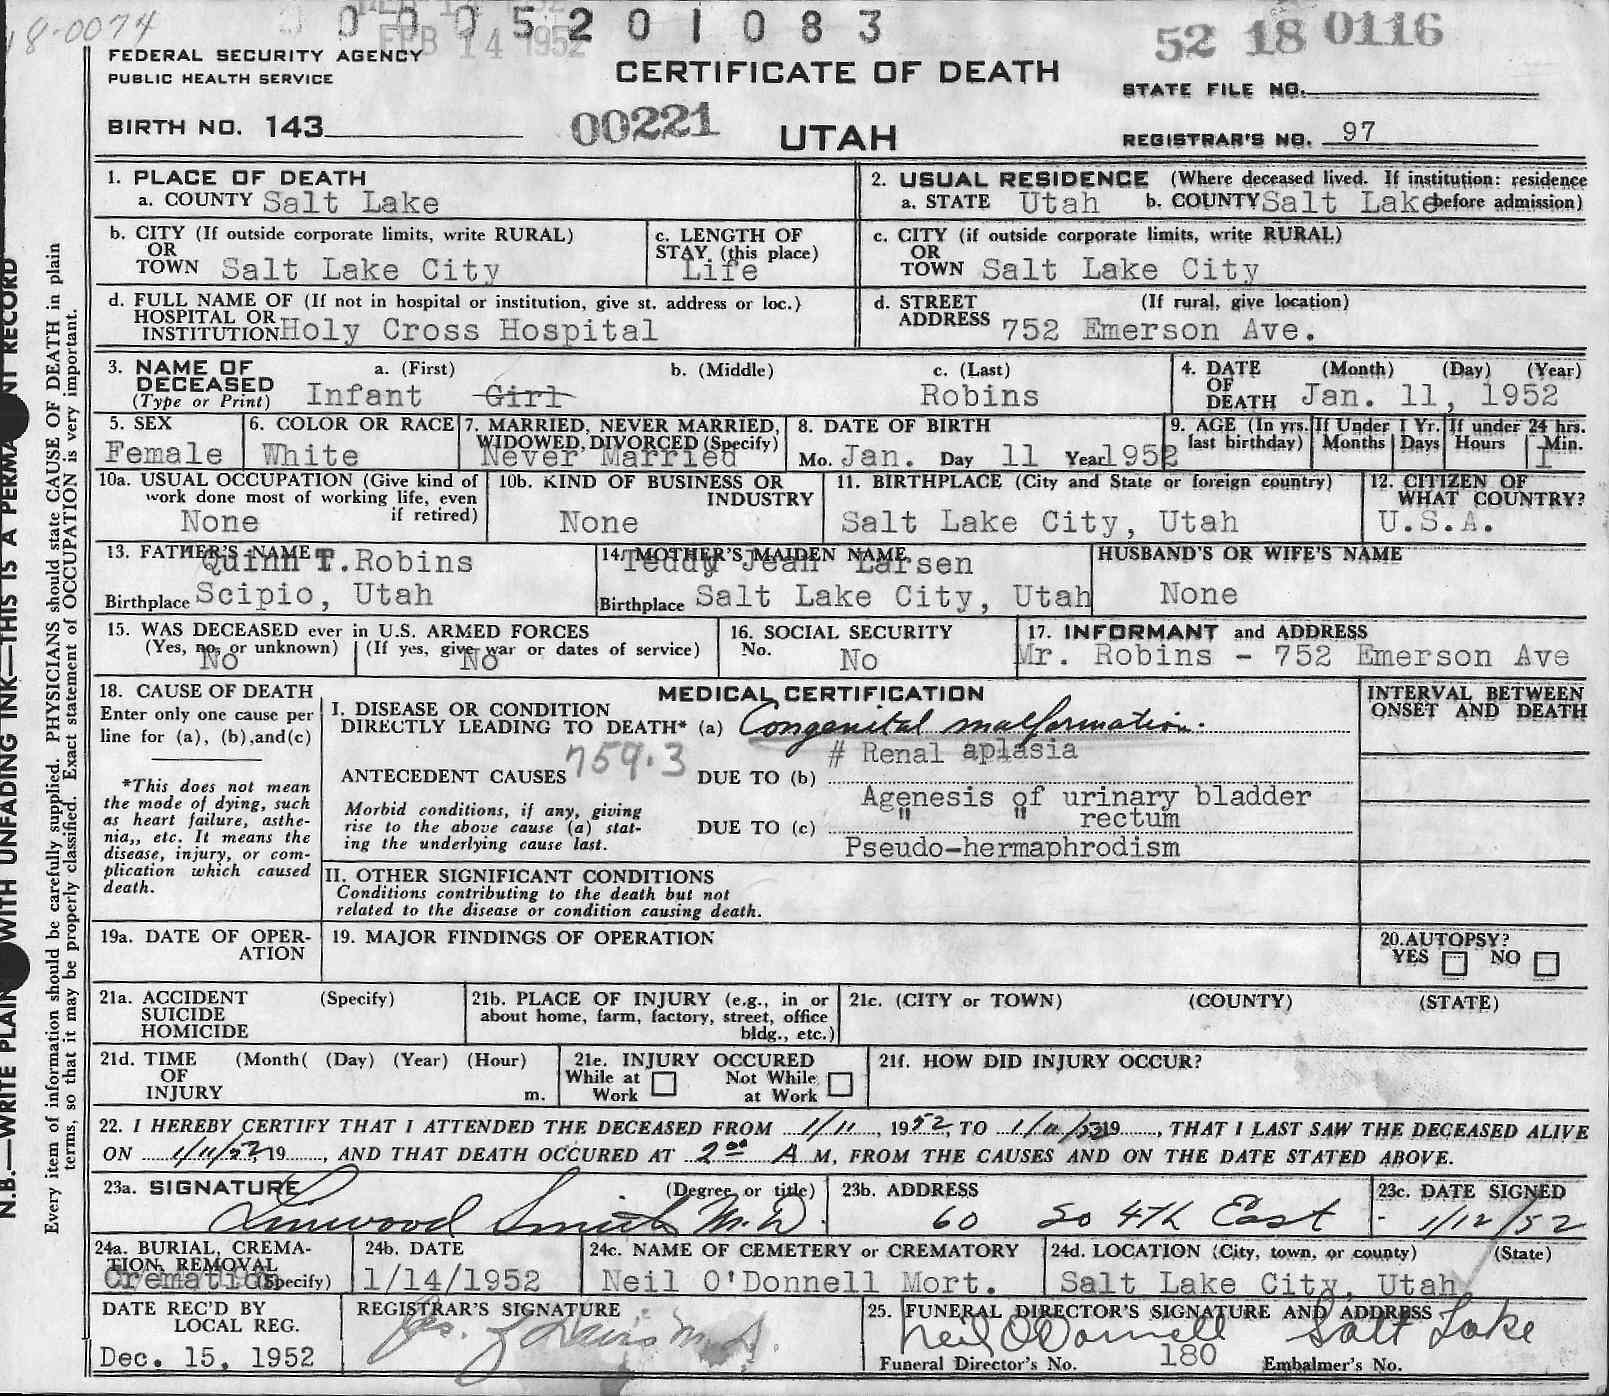 18-0074
0 0 0 5 2 0 1 0 8 3
FEB 14 1952
52 18 0116
FEDERAL SECURITY AGENCY
PUBLIC HEALTH SERVICE
CERTIFICATE OF DEATH
STATE FILE NO.
BIRTH NO. 143
00221
UTAH
REGISTRAR'S NO. 97
1. PLACE OF DEATH
a. COUNTY Salt Lake
2. USUAL RESIDENCE (Where deceased lived. If institution: residence before admission)
a. STATE Utah b. COUNTY Salt Lake
b. CITY (If outside corporate limits, write RURAL)
OR
TOWN Salt Lake City
c. LENGTH OF
STAY (this place)
Life
c. CITY (if outside corporate limits, write RURAL)
OR
TOWN Salt Lake City
d. FULL NAME OF (If not in hospital or institution, give st. address or loc.)
HOSPITAL OR
INSTITUTION Holy Cross Hospital
d. STREET (If rural, give location)
ADDRESS 752 Emerson Ave.
3. NAME OF a. (First) b. (Middle) c. (Last)
DECEASED
(Type or Print) Infant Girl Robins
4. DATE (Month) (Day) (Year)
OF
DEATH Jan. 11, 1952
5. SEX
Female
6. COLOR OR RACE
White
7. MARRIED, NEVER MARRIED,
WIDOWED, DIVORCED (Specify)
Never Married
8. DATE OF BIRTH
Mo. Jan. Day 11 Year 1952
9. AGE (In yrs. last birthday)
If Under 1 Yr. Months Days
If under 24 hrs. Hours Min.
1
10a. USUAL OCCUPATION (Give kind of
work done most of working life, even
if retired)
None
10b. KIND OF BUSINESS OR
INDUSTRY
None
11. BIRTHPLACE (City and State or foreign country)
Salt Lake City, Utah
12. CITIZEN OF
WHAT COUNTRY?
U.S.A.
13. FATHER'S NAME
Quinn T. Robins
Birthplace Scipio, Utah
14. MOTHER'S MAIDEN NAME
Teddy Jean Larsen
Birthplace Salt Lake City, Utah
HUSBAND'S OR WIFE'S NAME
None
15. WAS DECEASED ever in U.S. ARMED FORCES
(Yes, no, or unknown) (If yes, give war or dates of service)
No No
16. SOCIAL SECURITY
No.
No
17. INFORMANT and ADDRESS
Mr. Robins - 752 Emerson Ave
18. CAUSE OF DEATH
Enter only one cause per
line for (a), (b),and(c)
*This does not mean
the mode of dying, such
as heart failure, asthe-
nia,, etc. It means the
disease, injury, or com-
plication which caused
death.
MEDICAL CERTIFICATION
INTERVAL BETWEEN
ONSET AND DEATH
I. DISEASE OR CONDITION
DIRECTLY LEADING TO DEATH* (a) Congenital malformation.
# Renal aplasia
ANTECEDENT CAUSES 759.3 DUE TO (b)
Agenesis of urinary bladder
Morbid conditions, if any, giving
rise to the above cause (a) stat-
ing the underlying cause last.
" " rectum
DUE TO (c)
Pseudo-hermaphrodism
II. OTHER SIGNIFICANT CONDITIONS
Conditions contributing to the death but not
related to the disease or condition causing death.
19a. DATE OF OPER-
ATION
19. MAJOR FINDINGS OF OPERATION
20. AUTOPSY?
YES NO
21a. ACCIDENT (Specify)
SUICIDE
HOMICIDE
21b. PLACE OF INJURY (e.g., in or
about home, farm, factory, street, office
bldg., etc.)
21c. (CITY or TOWN) (COUNTY) (STATE)
21d. TIME (Month( (Day) (Year) (Hour)
OF
INJURY m.
21e. INJURY OCCURED
While at Work Not While at Work
21f. HOW DID INJURY OCCUR?
22. I HEREBY CERTIFY THAT I ATTENDED THE DECEASED FROM 1/11, 1952, TO 1/11/52 19, THAT I LAST SAW THE DECEASED ALIVE
ON 1/11/52, 19, AND THAT DEATH OCCURED AT 2:00 A M, FROM THE CAUSES AND ON THE DATE STATED ABOVE.
23a. SIGNATURE (Degree or title)
Linwood Smith M.D.
23b. ADDRESS
60 So 4th East
23c. DATE SIGNED
1/12/52
24a. BURIAL, CREMA-
TION, REMOVAL
(Specify)
Cremation
24b. DATE
1/14/1952
24c. NAME OF CEMETERY or CREMATORY
Neil O'Donnell Mort.
24d. LOCATION (City, town, or county) (State)
Salt Lake City, Utah
DATE REC'D BY
LOCAL REG.
Dec. 15, 1952
REGISTRAR'S SIGNATURE
25. FUNERAL DIRECTOR'S SIGNATURE AND ADDRESS
Neil O'Donnell Salt Lake
Funeral Director's No. 180 Embalmer's No.
Every item of information should be carefully supplied. PHYSICIANS should state CAUSE OF DEATH in plain
terms, so that it may be properly classified. Exact statement of OCCUPATION is very important.
N.B.—WRITE PLAIN WITH UNFADING INK—THIS IS A PERMA NT RECORD